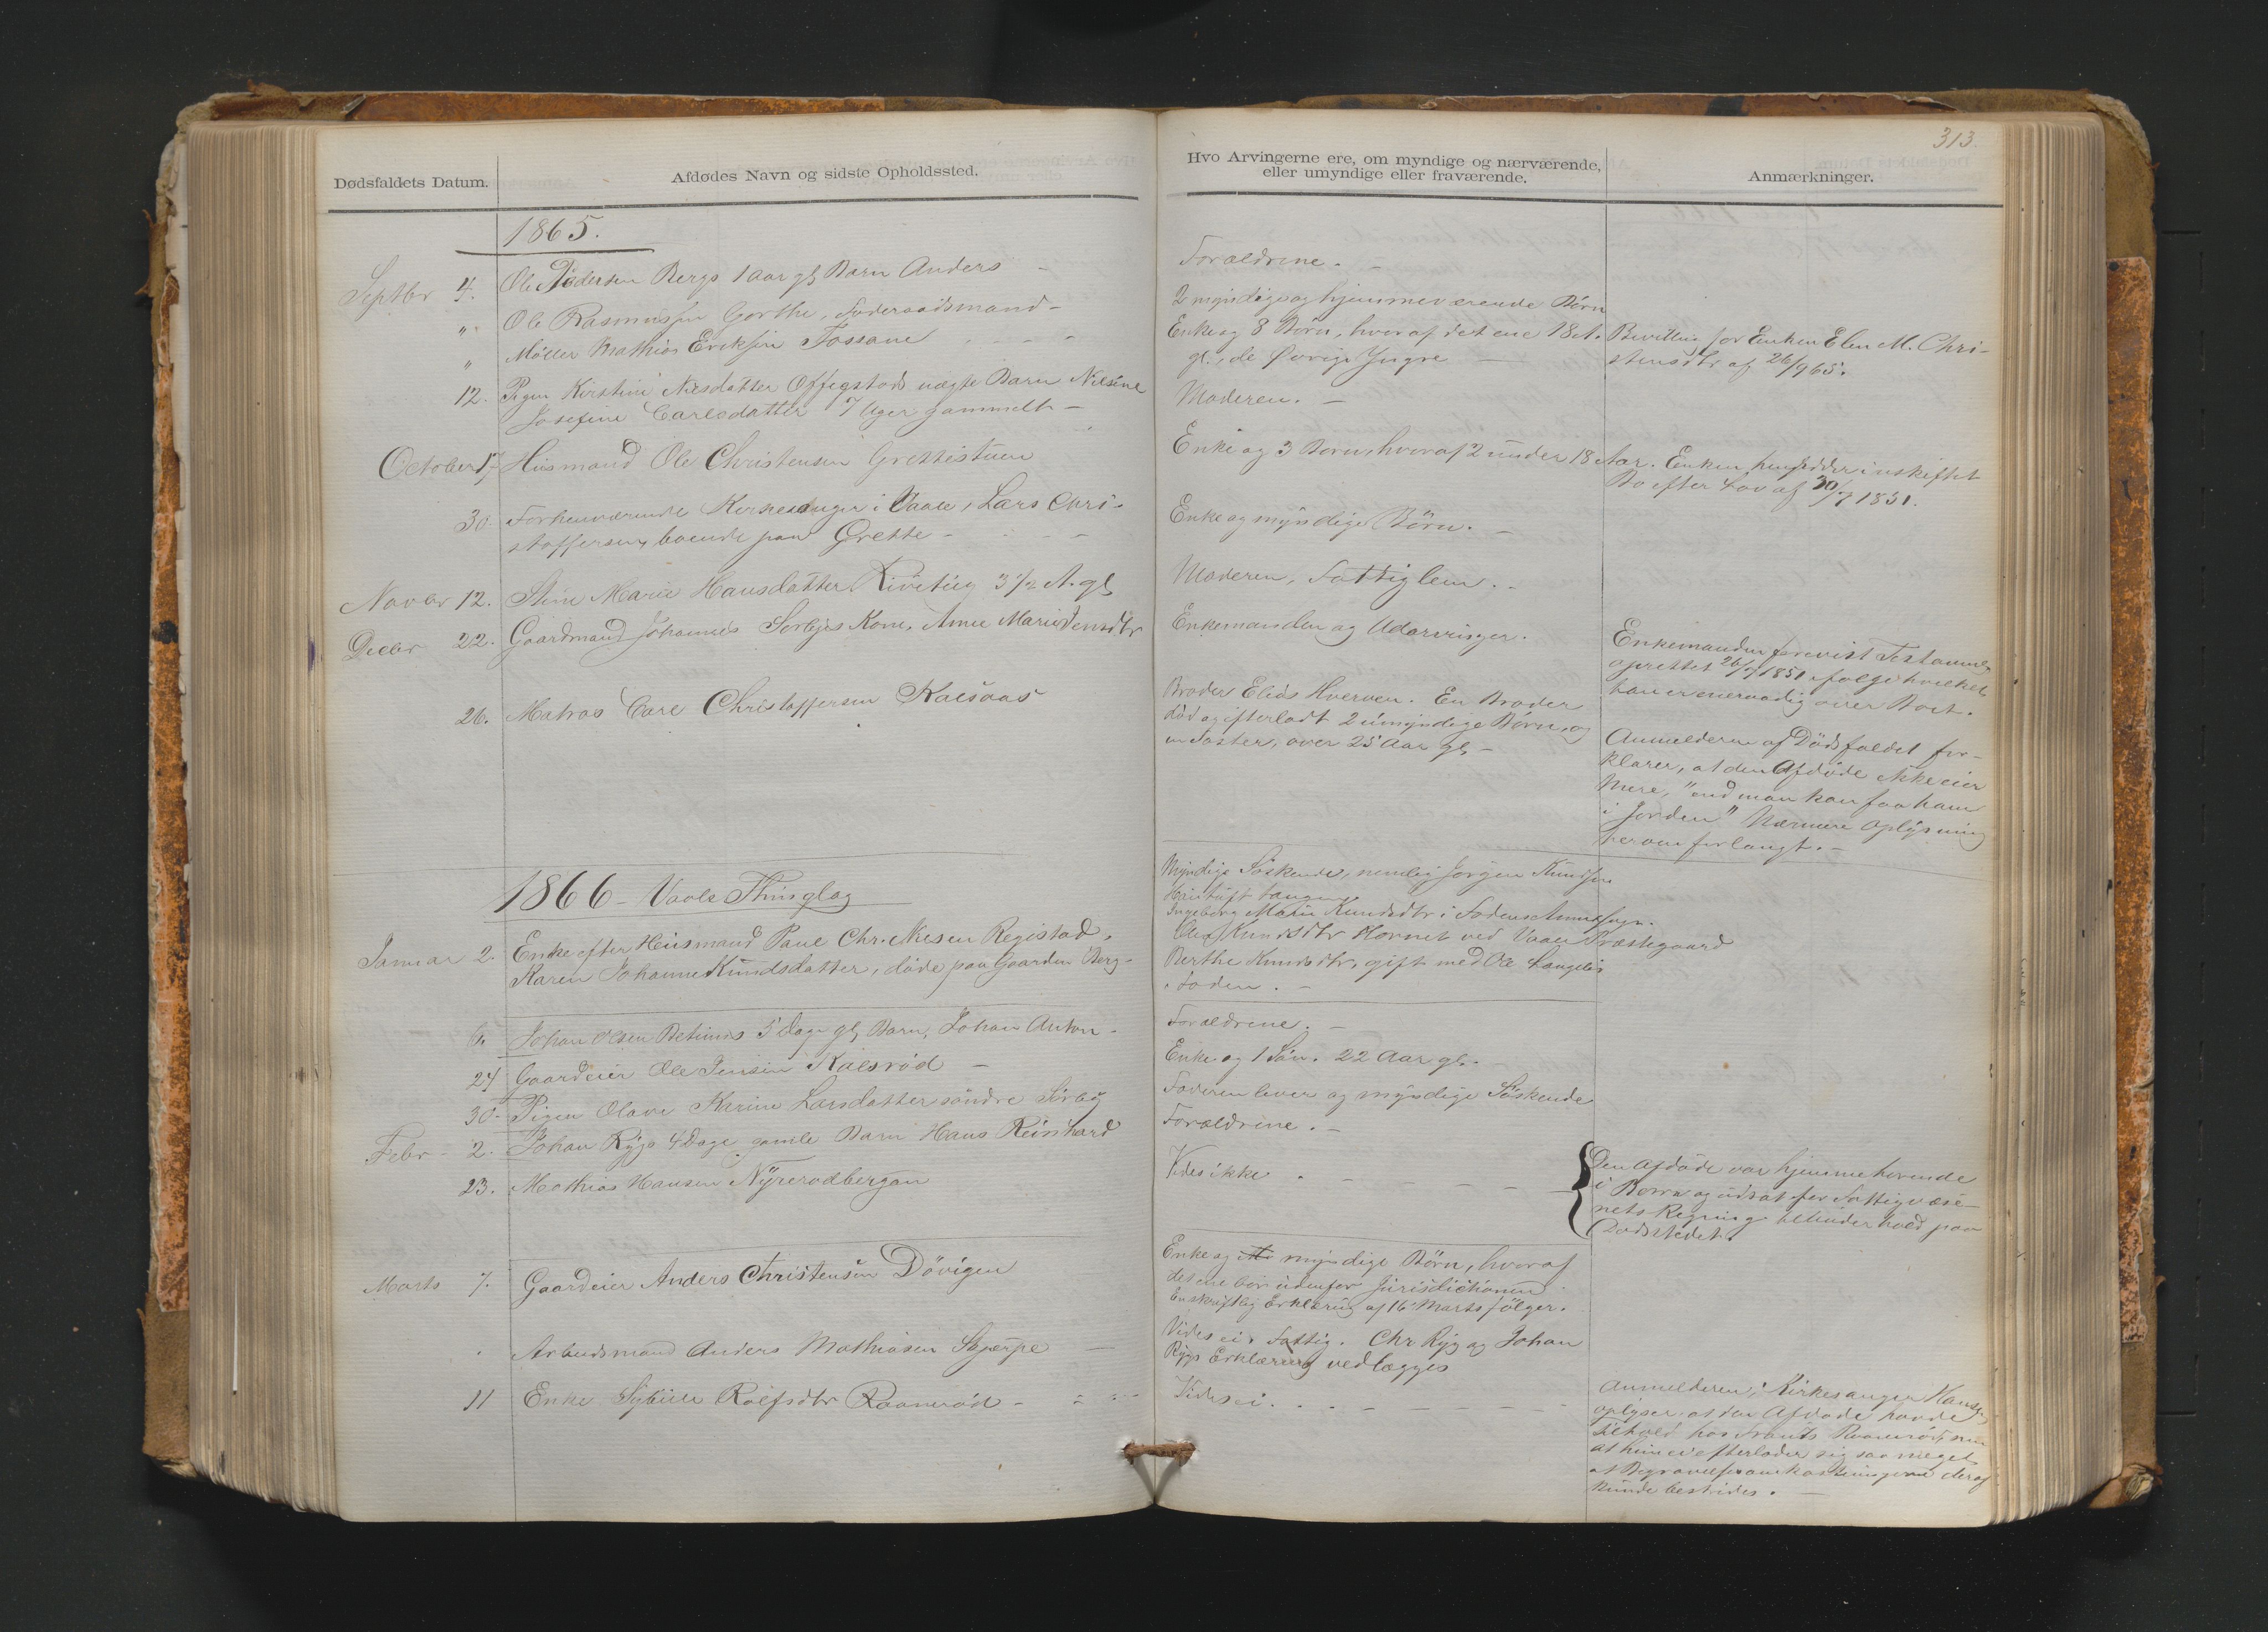 313.
Dødsfaldets Datum.
Afdødes Navn og sidste Opholdssted.
Hvo Arvingerne ere, om myndige og nærværende,
eller umyndige eller fraværende.
Anmærkninger.
1865.
Septbr 4. Ole Pedersen Bergs 1 Aar gl. Barn Anders -
Forældrene. -
" Ole Rasmussen Gorthe, Foderaadsmand -
2 myndige og hjemmeværende Børn
" Møller Mathias Eriksen Fossane - - -
Enke og 8 Børn, hvoraf det ene 18 A.
gl., de Øvrige Yngre -
Bevilling for Enken Elen M. Chri-
stensdtr af 26/9 65.
12. Pigen Kirstine Nilsdatter Offigstads uægte Barn Nilsine
Josefine Carlsdatter 7 Uger gammelt -
Moderen. -
October 17 Husmand Ole Christensen Grettestuen
Enke og 3 Børn, hvoraf 2 under 18 Aar.
Enken hensidder i uskiftet
Bo efter Lov af 30/7 1851.
30 Forhenværende Kirkesanger i Vaale, Lars Chri-
stoffersen, boende paa Grette - - -
Enke og myndige Børn. -
Novbr 12. Stine Marie Hansdatter 3 1/2 A. gl.
Moderen, Fattiglem. -
Decbr 22. Gaardmand Johannes Sørbyes Kone, Anne Marie Jensdtr
Enkemanden og Udarvinger.
Enkemanden forevist Testamente
oprettet 26/7 1851 ifølge hvilket
han er eneraadig over Boet.
26. Matros Carl Christoffersen Kalsaas
Broder Elias Hverven. En Broder
død og efterladt 2 umyndige Børn, og
en Søster, over 25 Aar gl. -
Anmelderen af Dødsfaldet for-
klarer, at den Afdøde ikke eier
Mere, "end man kan faa ham
i Jorden" Nærmere Oplysning
herom forlangt. -
1866 - Vaale Thinglag
Januar 2. Enke efter Husmand Paul Chr. Nilsen Registad,
Karen Johanne Knudsdatter, døde paa Gaarden Berg -
Myndige Søskende, nemlig Jørgen Knudsen
Ingeborg Marie Knudsdtr i Fodens Annexsogn.
Knudsdtr Hornet ved Vaale Præstegaard
Berthe Knudsdtr, gift med Ole Langelis
i Foden. -
6. Johan Olsen Betuens 5 Dage gl. Barn, Johan Anton -
Forældrene. -
24 Gaardeier Ole Jensen Kalsrød -
Enke og 1 Søn. 22 Aar gl. -
30. Pigen Olave Karine Larsdatter søndre Sørby
Faderen lever og myndige Søskende
Febr - 2. Johan Rygs 4 Dage gamle Barn Hans Reinhard
Forældrene. -
23. Mathias Hansen Nyrerødbergan
Vides ikke . - - - -
Den Afdøde var hjemmehørende
i Borre og udsat for Fattigvæse-
nets Regning til Underhold paa
Dødsstedet.
Marts 7. Gaardeier Anders Christensen Døvigen
Enke og myndige Børn, hvoraf
det ene bor udenfor Jurisdictionen.
En skriftlig Erklæring af 16 Marts følger.
" Arbeidsmand Anders Mathiasen Skjerpe -
Vides ei. Fattig. Chr Ryg og Johan
Rygs Erklæring vedlægges
11 Enke Sybille Rolfsdtr Raanerød - - -
Vides ei. - - - -
Anmelderen, Kirkesanger Hansen,
oplyser at den Afdøde havde
Tilhold hos Frants Raanerød, men
at hun ei efterlader sig saa meget
at Begravelsesomkostningerne deraf
kunde bestrides. -